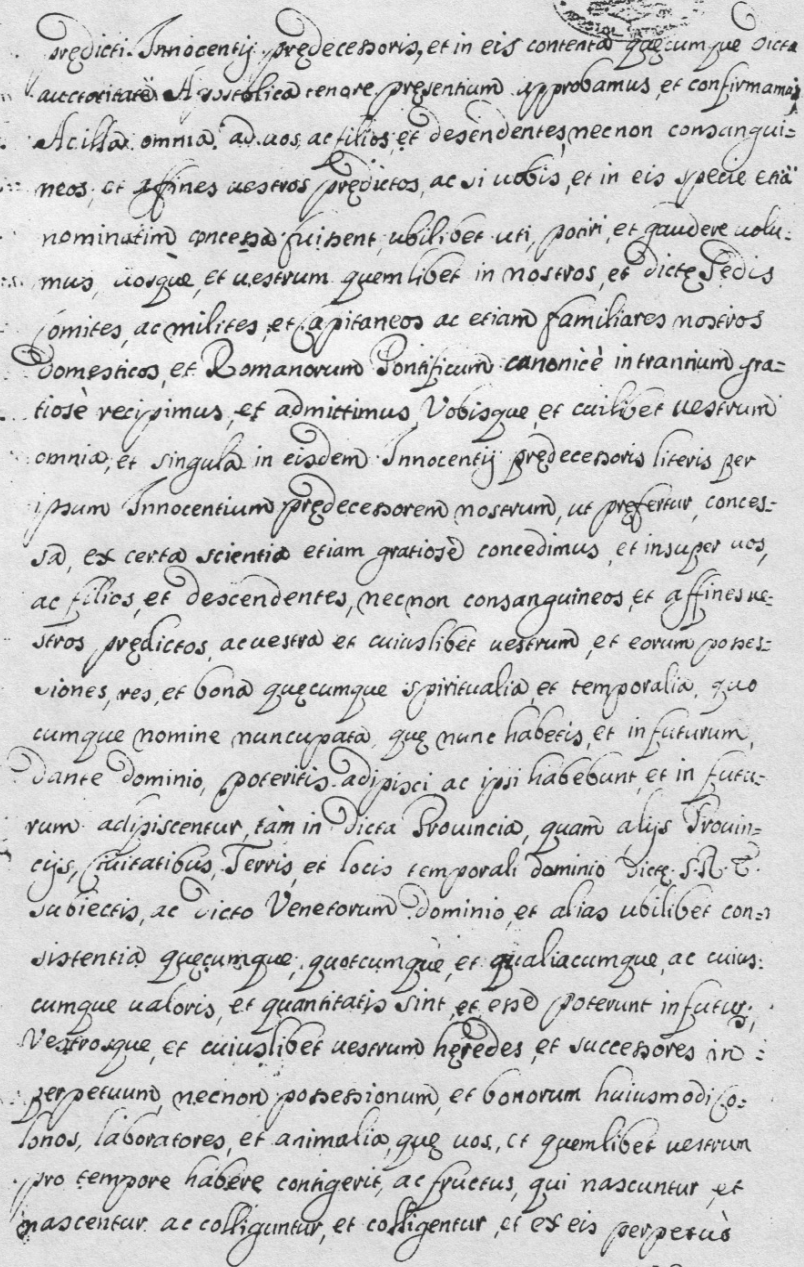 prędicti Innocentij prędecessoris, et in eis contenta quęcumque dicta
auctoritate Apostolica tenore pręsentium approbamus, et confirmamus
Ac illa omnia ad uos, ac filios, et desendentes, necnon consangui=
neos, et affines uestros prędictos, ac si uobis, et in eis specie etiā
nominatim concessa fuissent, ubilibet uti, potiri, et gaudere uolu=
mus, uosquè, et uestrum quemlibet in nostros, et dictę Sedis
Comites, ac milites, et Capitaneos ac etiam familiares nostros
domesticos, et Romanorum Pontificum canonicè intrantium gra=
tiosè recipimus, et admittimus, Vobisque, et cuilibet uestrum
omnia, et singula in eisdem Innocentij prędecessoris literis per
ipsum Innocentium prędecessorem nostrum, ut pręfertur, conces=
sa, ex certa scientia etiam gratiosè concedimus, et insuper uos,
ac filios, et descendentes, necnon consanguineos, et affines ue=
stros prędictos, ac uestra et cuiuslibet uestrum, et eorum posses=
siones, res, et bona quęcumque spiritualia, et temporalia, quo
cumque nomine nuncupata, quę nunc habetis, et in futurum,
dante domino, poteritis adipisci, ac ipsi habebunt, et in futu=
rum adipiscentur, tàm in dicta Prouincia, quam alijs Prouin=
cijs, Ciuitatibus, Terris, et locis temporali dominio dictę S. R. E.
subiectis, ac dicto Venetorum dominio, et alias ubilibet con=
sistentia quęcumque, quotcumquè, et qualiacumque, ac cuius=
cumque ualoris, et quantitatis sint, et esse poterunt in futur,
Vestrosque, et cuiuslibet uestrum hęredes, et successores in =
perpetuum, necnon possessionum, et bonorum huiusmodi Co=
lonos, laboratores, et animalia, quę uos, et quemlibet uestrum
pro tempore habere contigerit, ac fructus, qui nascuntur, et
nascentur ac colliguntur, et colligentur, et ex eis perpetuò